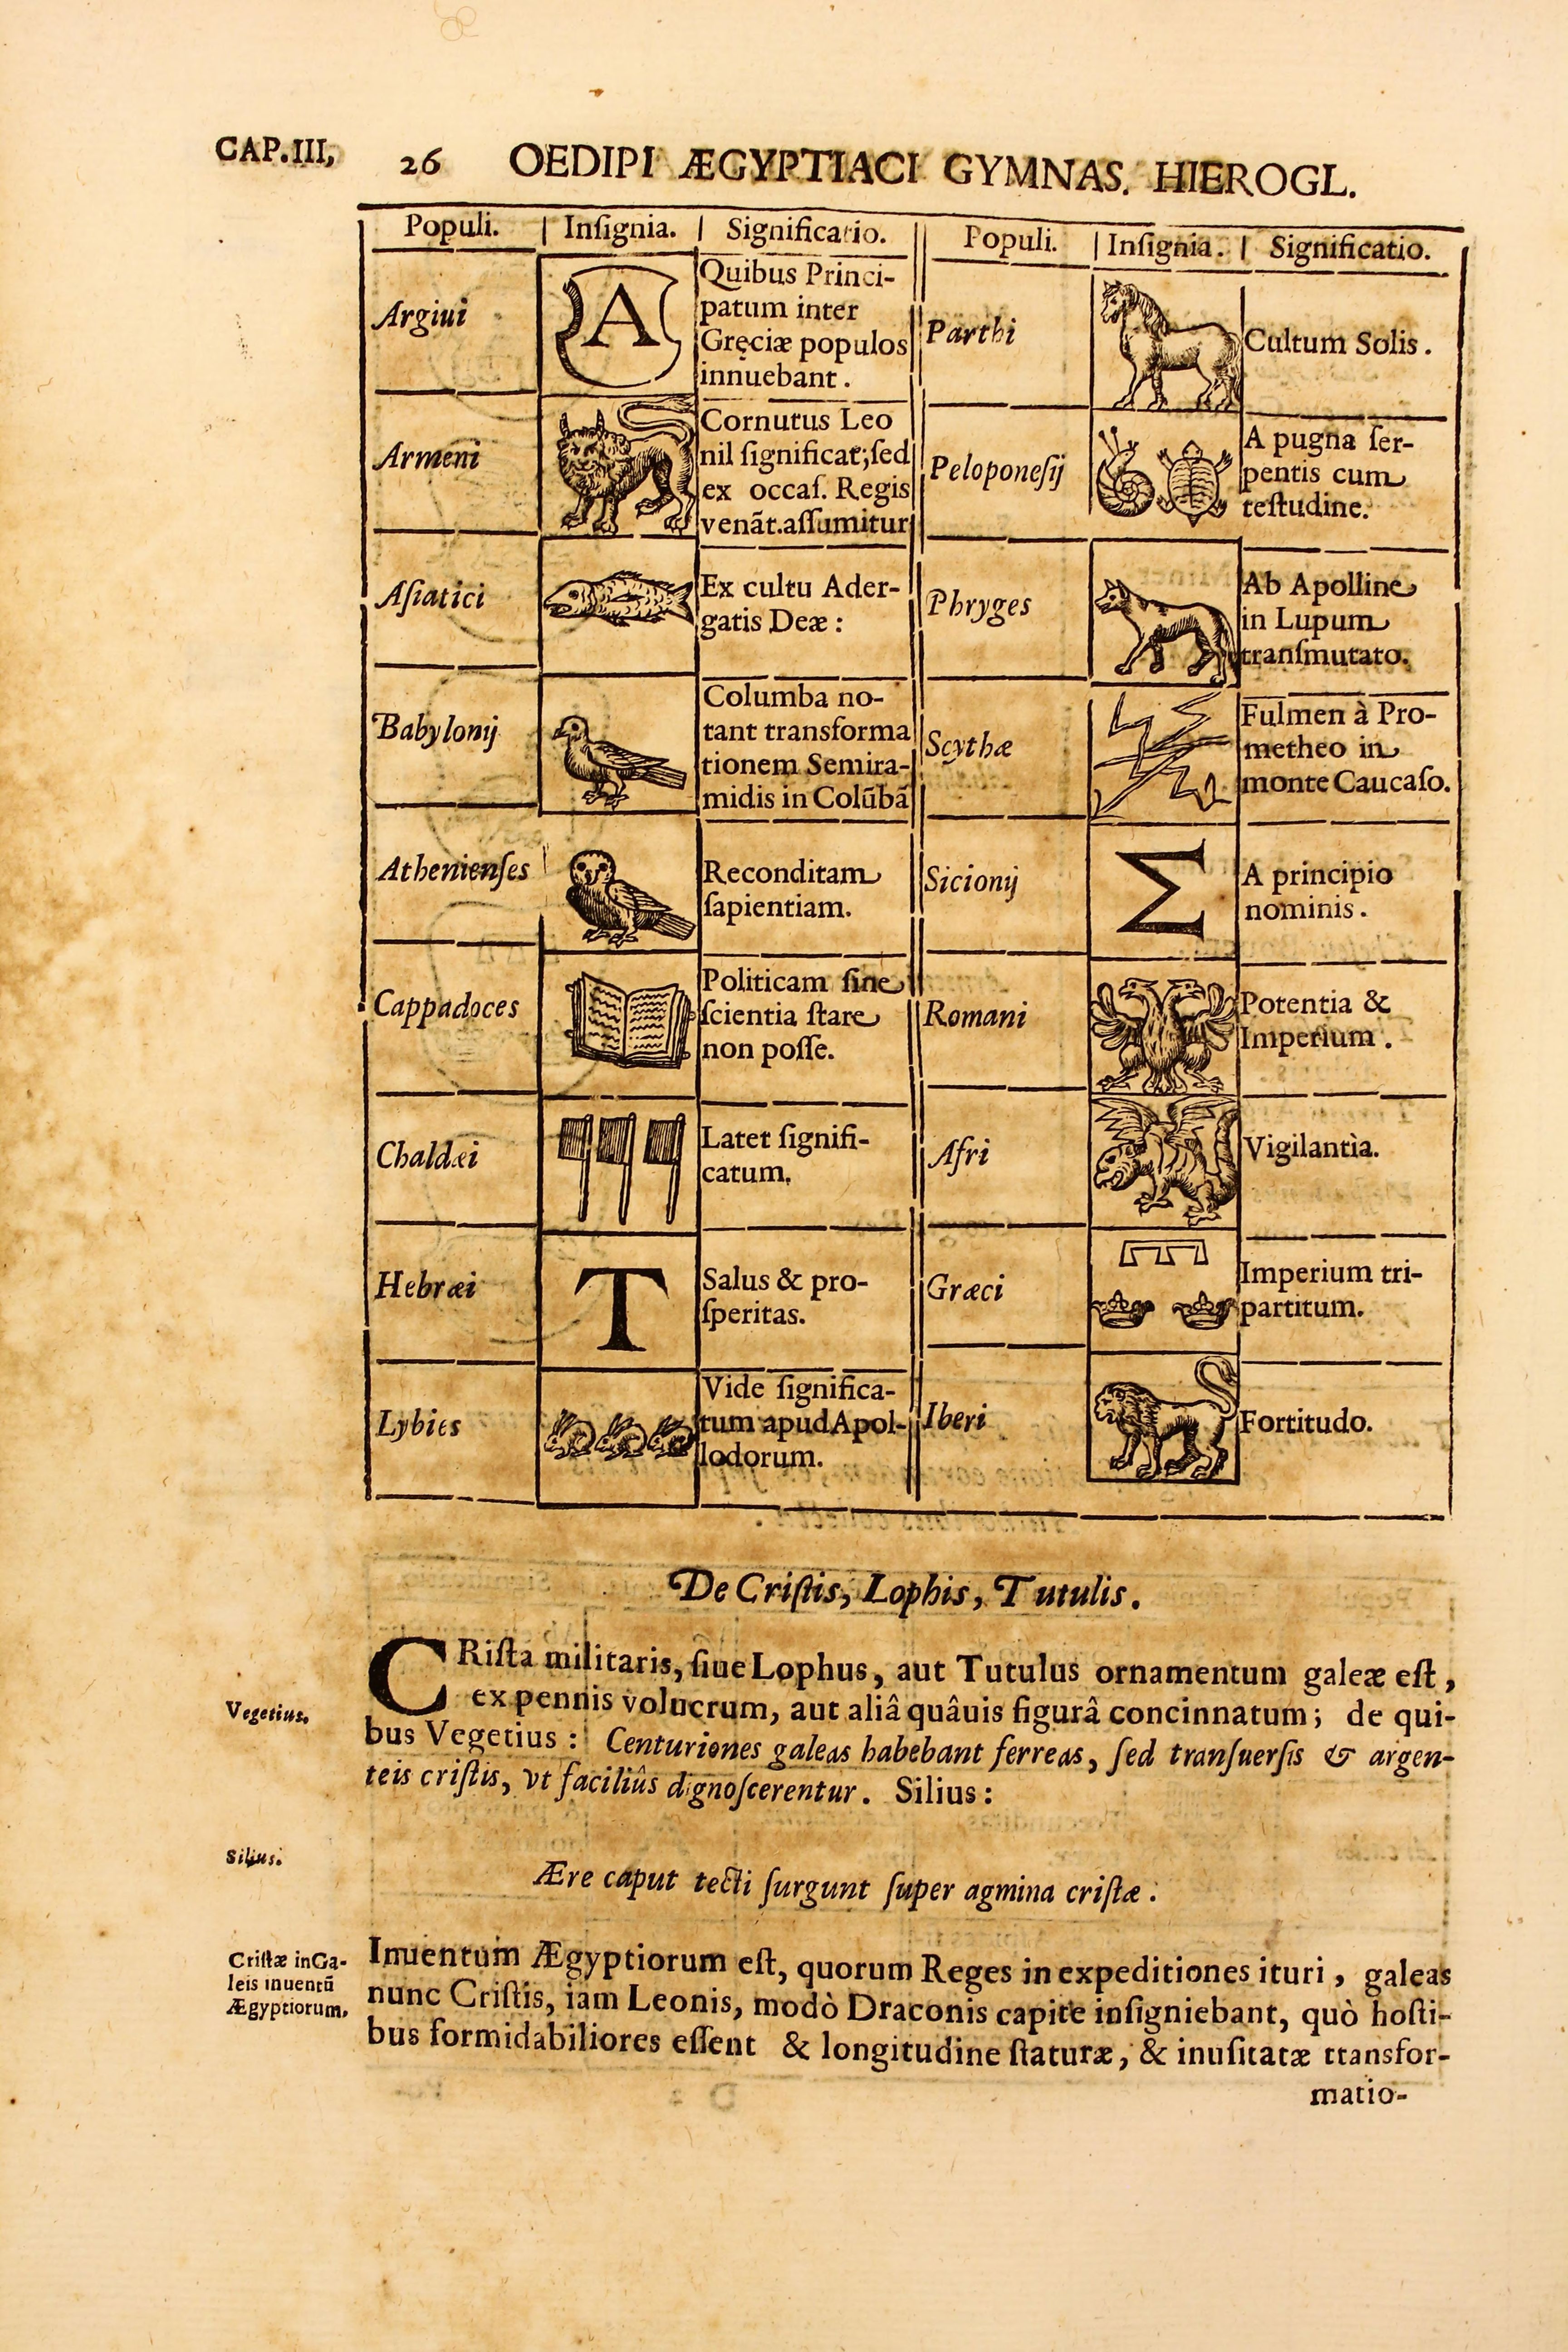 CAP.III,
26 OEDIPI ÆGYPTIACI GYMNAS. HIEROGL.
Populi. | Inſignia. | Significatio.
Argiui
A
Quibus Princi-
patum inter
Gręciæ populos
innuebant.
Armeni
Cornutus Leo
nil ſignificat; ſed
ex occaſ. Regis
venãt. aſſumitur
Aſiatici
Ex cultu Ader-
gatis Deæ:
Babylonij
Columba no-
tant transforma
tionem Semira-
midis in Colũbã
Athenienſes
Reconditam
ſapientiam.
Cappadoces
Politicam ſine
ſcientia ſtare
non poſſe.
Chaldæi
Latet ſignifi-
catum.
Hebræi
T
Salus & pro-
ſperitas.
Lybies
Vide ſignifica-
tum apud Apol-
lodorum.
Populi. | Inſignia. | Significatio.
Parthi
Cultum Solis.
Peloponeſij
A pugna ſer-
pentis cum
teſtudine.
Phryges
Ab Apolline
in Lupum
tranſmutato.
Scythæ
Fulmen à Pro-
metheo in
monte Caucaſo.
Sicionij
Σ
A principio
nominis.
Romani
Potentia &
Imperium.
Afri
Vigilantìa.
Græci
Imperium tri-
partitum.
Iberi
Fortitudo.
De Criſtis, Lophis, Tutulis.
CRiſta militaris, ſiue Lophus, aut Tutulus ornamentum galeæ eſt,
ex pennis volucrum, aut aliâ quâuis figurâ concinnatum; de qui-
Vegetius.
bus Vegetius: Centuriones galeas habebant ferreas, ſed tranſuerſis & argen-
teis criſtis, vt faciliûs dignoſcerentur. Silius:
Silius.
Ære caput tecti ſurgunt ſuper agmina criſtæ.
Criſtæ in Ga-
leis inuentũ
Ægyptiorum.
Inuentum Ægyptiorum eſt, quorum Reges in expeditiones ituri, galeas
nunc Criſtis, iam Leonis, modò Draconis capite inſigniebant, quò hoſti-
bus formidabiliores eſſent & longitudine ſtaturæ, & inuſitatæ ttansfor-
matio-